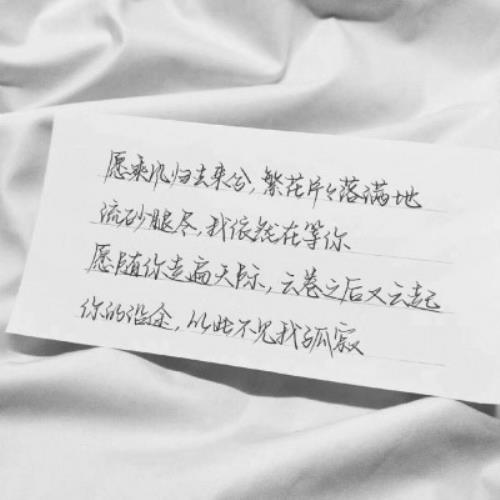 愿乘风归去来兮,繁花片々落满地
流砂腿尽,我依然在等你
愿随你走遍天际,云卷之后又云起
你的沿途,从此不见我孤寂